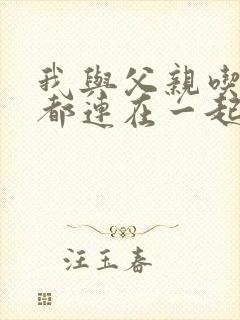 我與父親喫
都連在一起
汪玉春